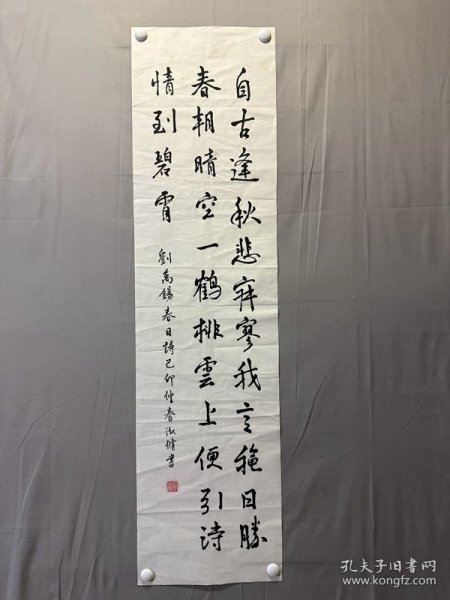 自古逢秋悲寂寥我言秋日勝
春朝晴空一鶴排雲上便引詩
情到碧霄
劉禹錫春日詩己卯仲春淑脩書
孔夫子旧书网
www.kongfz.com